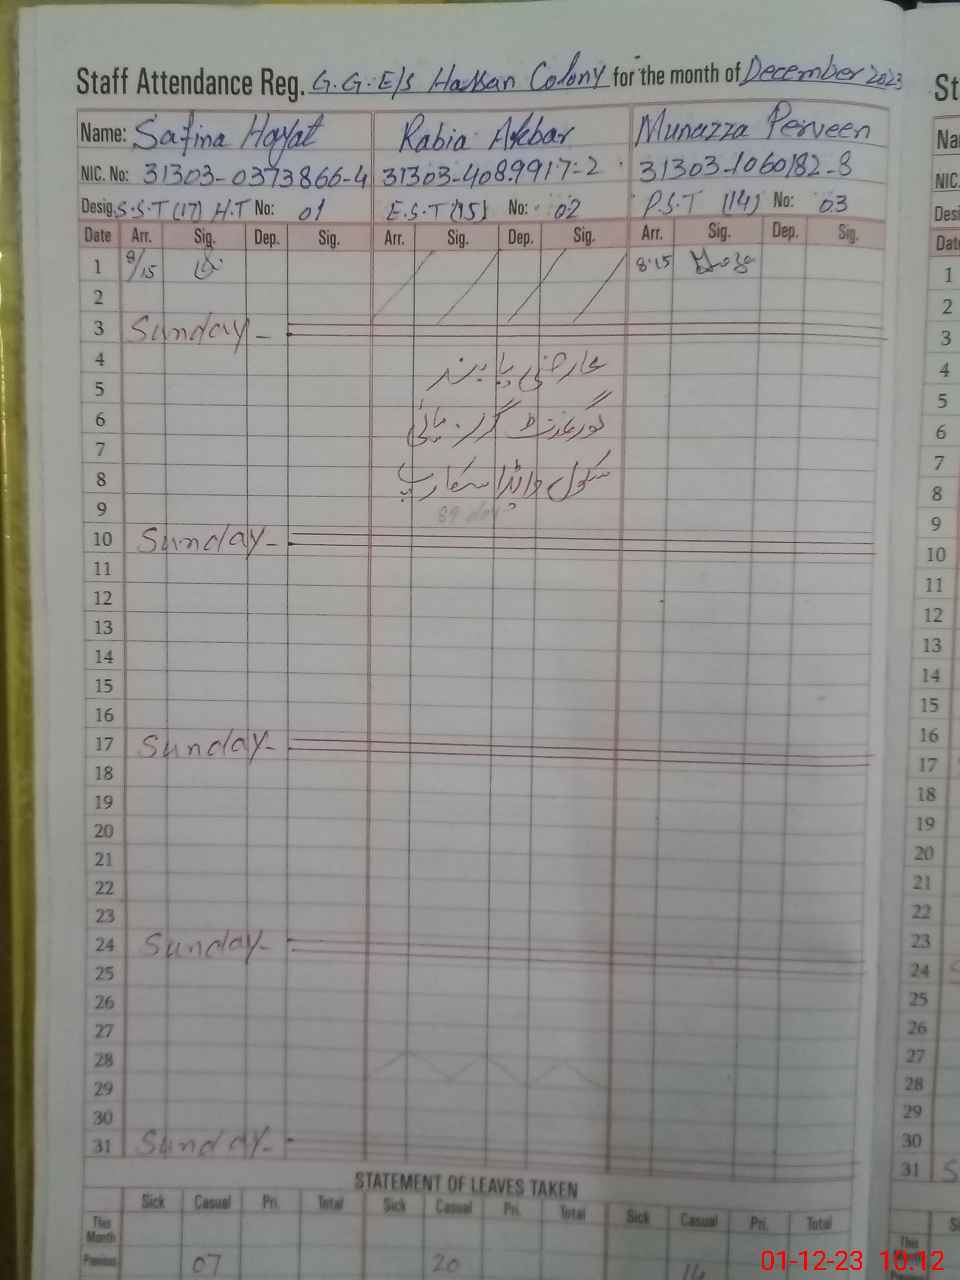 Staff Attendance Reg. G.G.E/S Hassan Colony for the month of December 2023
Name: Safina Hayat Rabia Akbar Munazza Perveen
NIC. No: 31303-0373866-4 31303-4089917-2 31303-1060182-8
Desig. S.S.T (17) H.T No: 01 E.S.T (15) No: 02 P.S.T (14) No: 03
Date Arr. Sig. Dep. Sig. Arr. Sig. Dep. Sig. Arr. Sig. Dep. Sig.
1 8/15 8.15
2
3 Sunday
4 عارضی پابند
5
6 گورنمنٹ گرلز ہائی
7
8 سکول واپڈا سکارپ
9
10 Sunday
11
12
13
14
15
16
17 Sunday
18
19
20
21
22
23
24 Sunday
25
26
27
28
29
30
31 Sunday
STATEMENT OF LEAVES TAKEN
Sick Casual Pri. Total Sick Casual Pri. Total Sick Casual Pri. Total
This Month
Previous 07 20 14
St
Na
NIC.
Desi
Dat
1
2
3
4
5
6
7
8
9
10
11
12
13
14
15
16
17
18
19
20
21
22
23
24
25
26
27
28
29
30
31 S
This Month
01-12-23 10:12